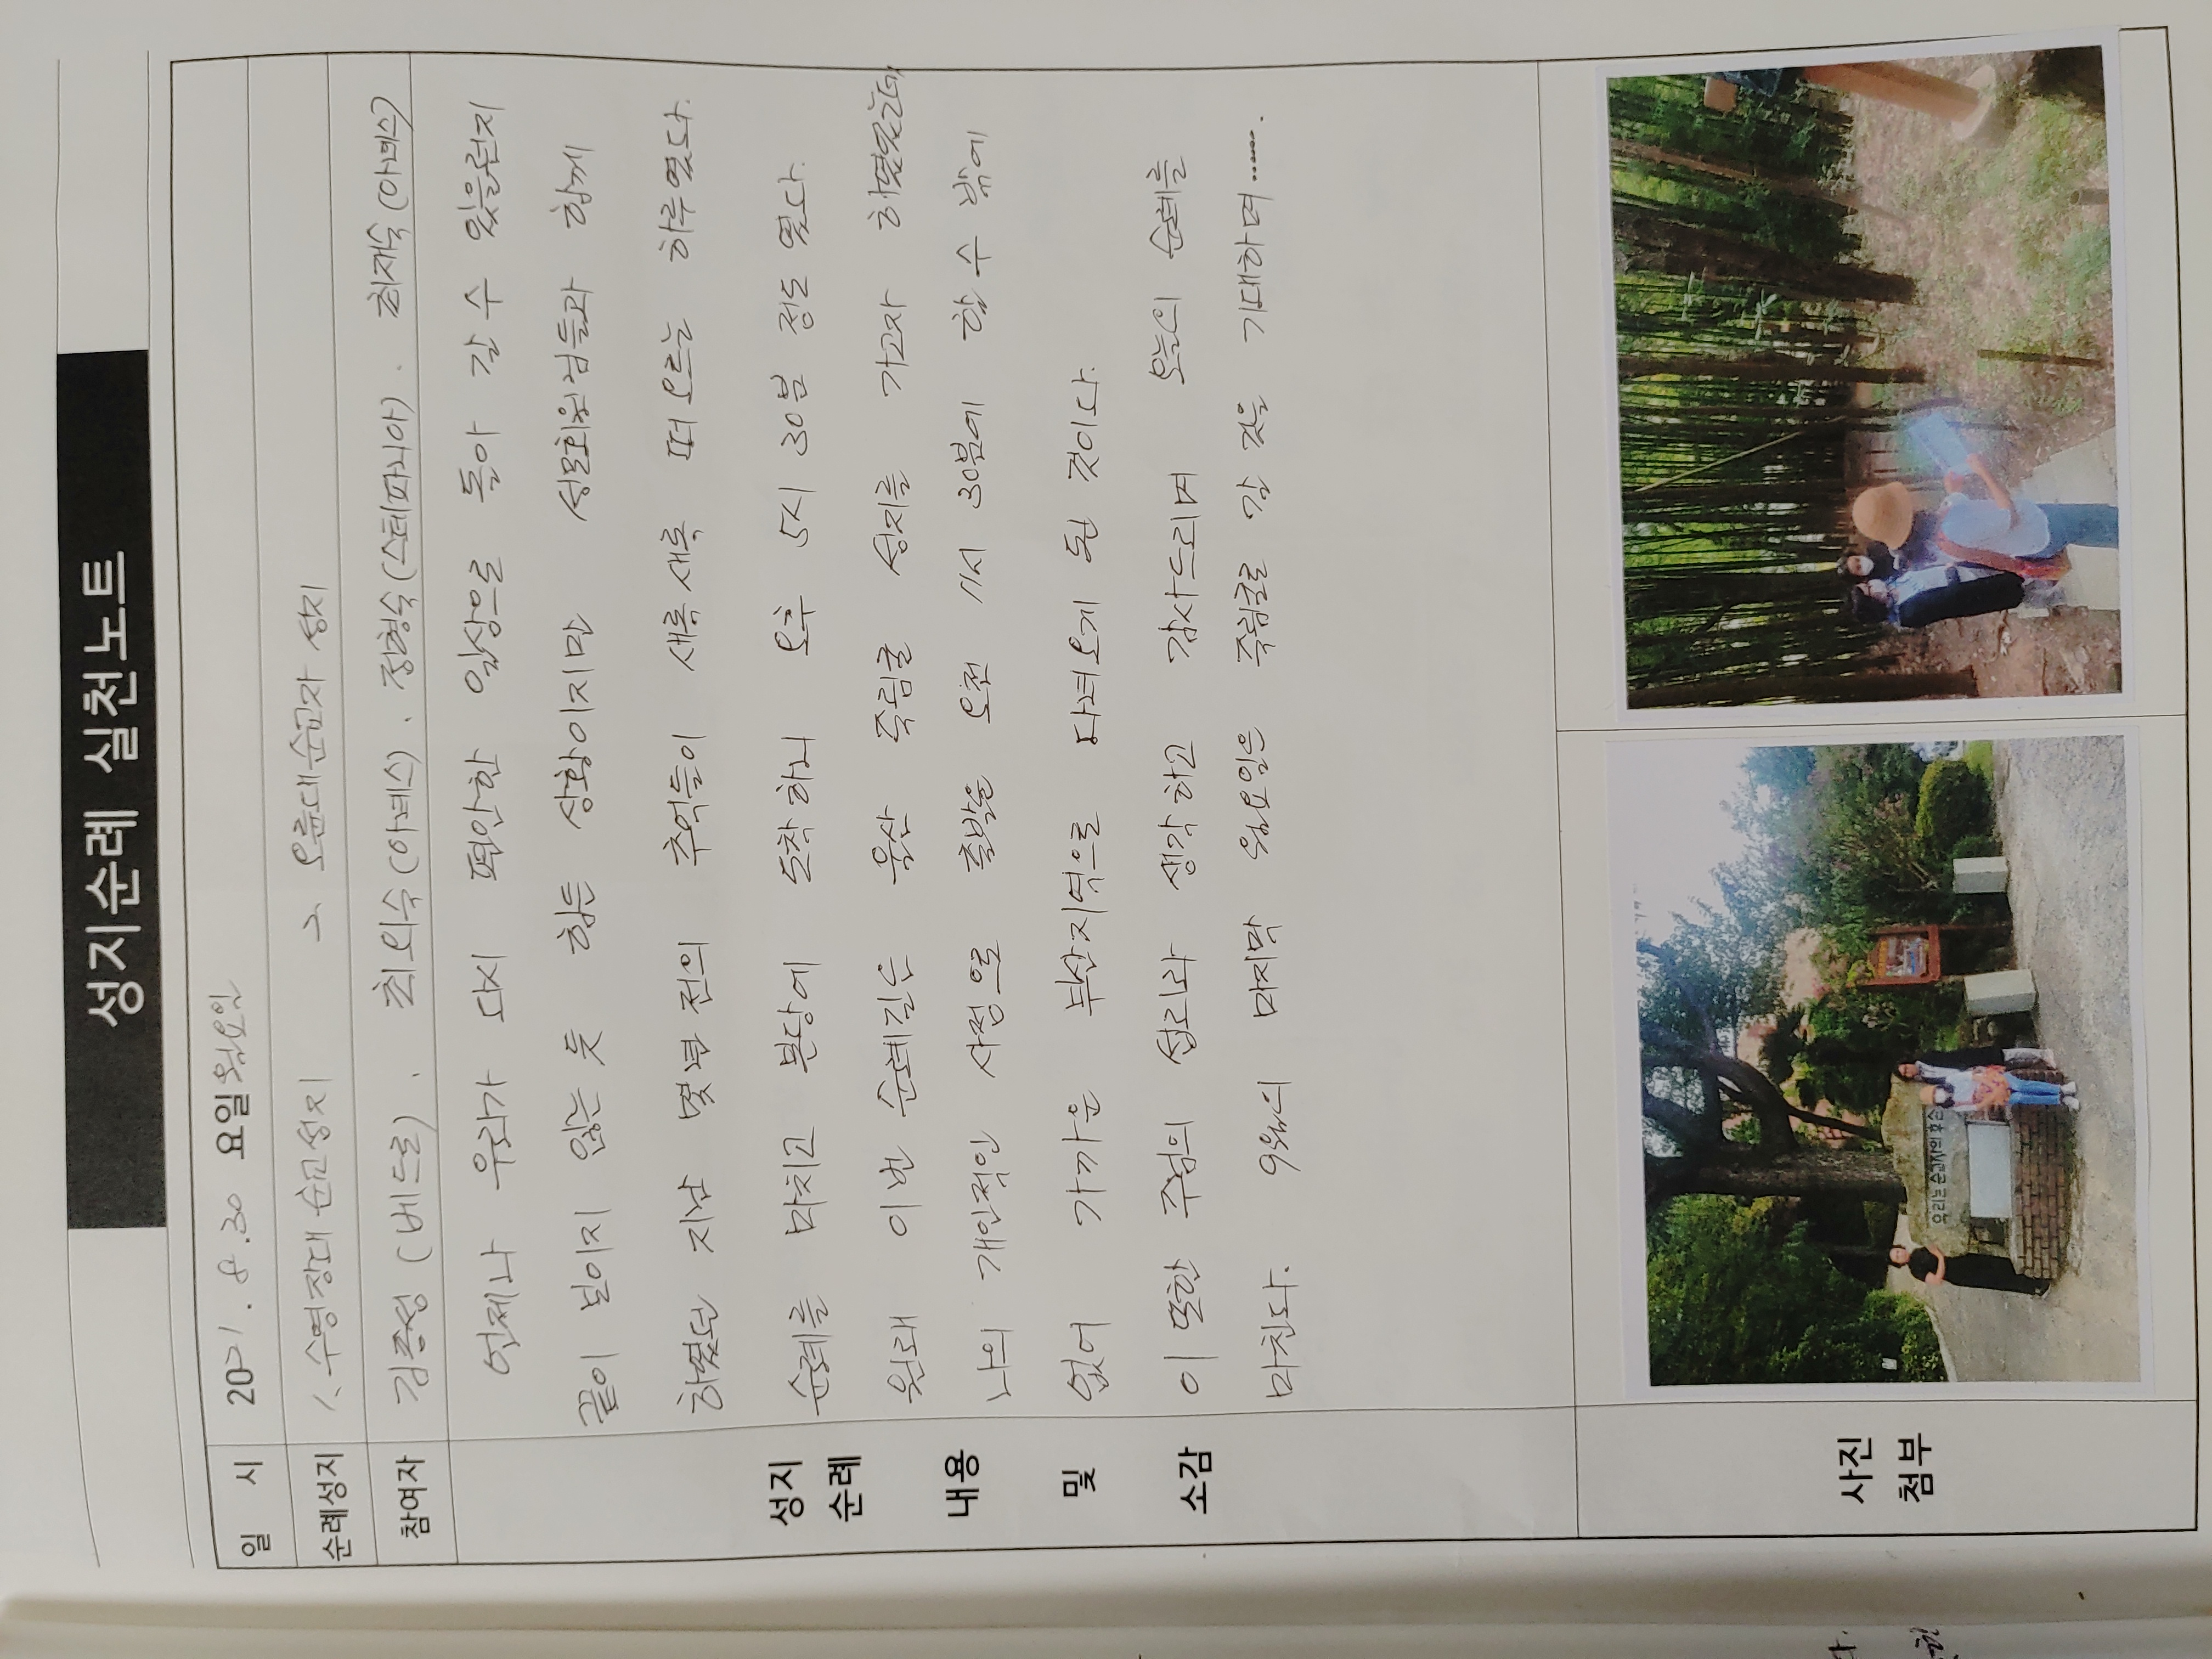 성지순례 실천노트
일 시 2021. 8. 30 요일 월요일
순례성지 1. 수영장대 순교성지 2. 오륜대순교자 성지
참여자 김종성 (베드로). 최외숙 (아녜스). 정형숙 (스테파니아). 최재숙 (아녜스)
성지
순례
내용
및
소감
언제나 우리가 다시 편안한 일상으로 돌아 갈 수 있을런지
끝이 보이지 않는 듯 힘든 상황이지만 성모회원님들과 함께
하였던 지난 몇년 전의 추억들이 새록새록 떠오르는 하루였다.
순례를 마치고 본당에 도착하니 오후 5시 30분 정도 였다.
원래 이번 순례길은 울산 죽림굴 성지를 가고자 하였었는데,
나의 개인적인 사정으로 출발을 오전 11시 30분에 할 수 밖에
없어 가까운 부산지역으로 다녀오게 된 것이다.
이 또한 주님의 섭리라 생각하고 감사드리며 오늘의 순례를
마친다. 9월의 마지막 월요일은 죽림굴로 갈 것을 기대하며.......
사진
첨부
우리는 순교자의 후손
다.